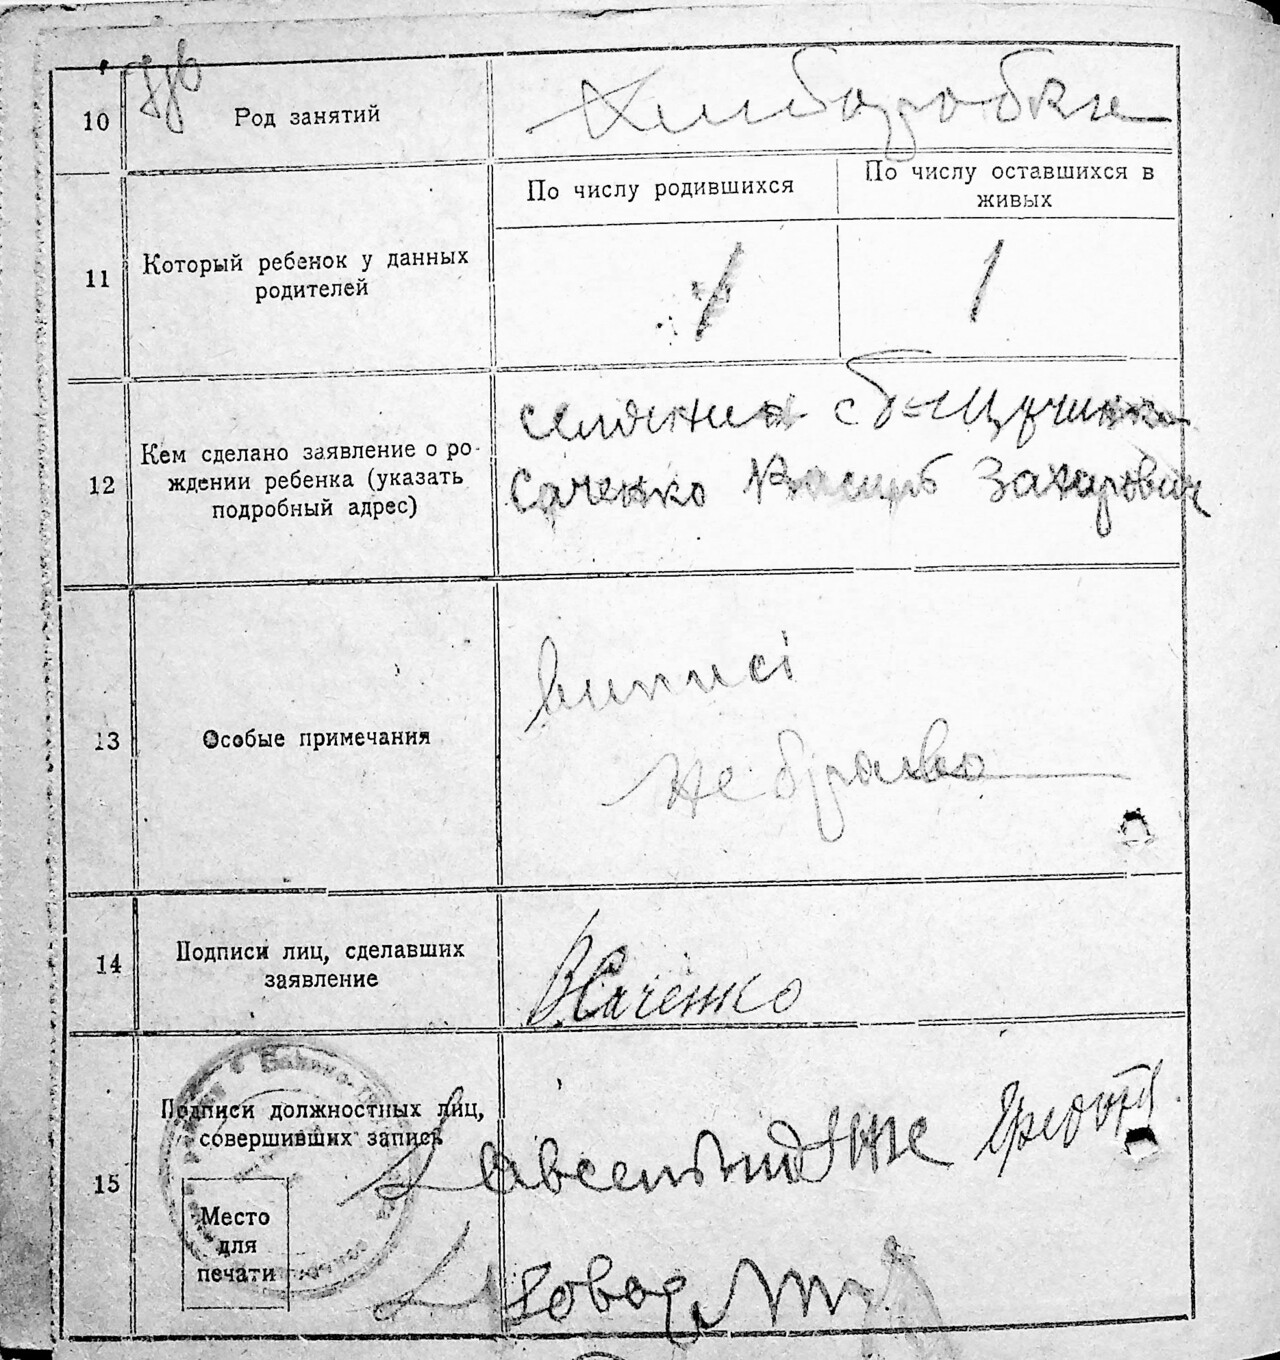 10
Род занятий
Хлиборобки
По числу родившихся
По числу оставшихся в
живых
11
Который ребенок у данных
родителей
1
1
12
Кем сделано заявление о ро-
ждении ребенка (указать
подробный адрес)
селянин с
Саченко Василь Захарович
13
Особые примечания
виписі
не брало
14
Подписи лиц, сделавших
заявление
ВСаченко
15
Подписи должностных лиц,
совершивших запись
Место
для
печати